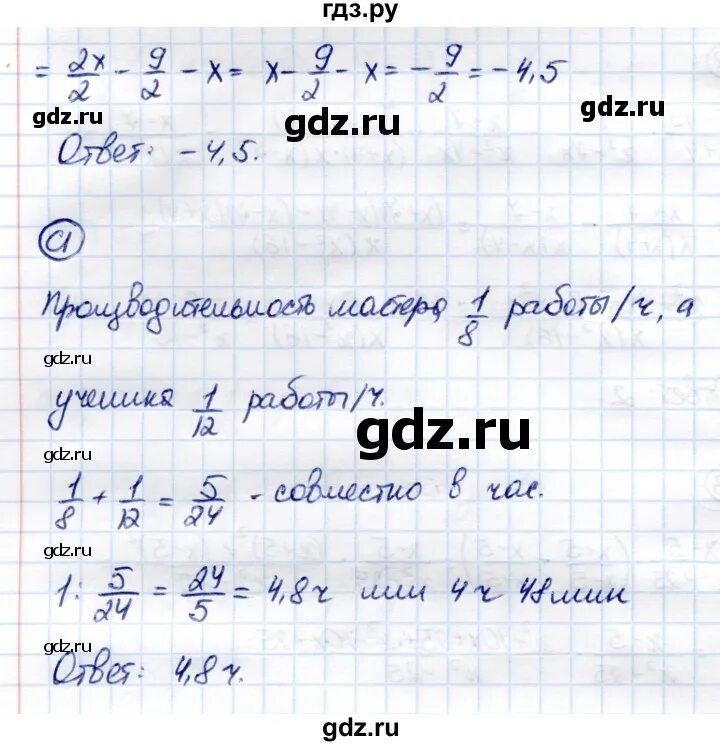 гдз.ру
= 2x/2 - 9/2 - x = x - 9/2 - x = - 9/2 = -4,5
gdz.ru gdz.ru gdz.ru
Ответ: -4,5.
C1
Производительность мастера 1/8 работы/ч, а
gdz.ru
ученика 1/12 работы/ч.
gdz.ru
gdz.ru
1/8 + 1/12 = 5/24 - совместно в час.
gdz.ru
1 : 5/24 = 24/5 = 4,8 ч или 4 ч 48 мин
gdz.ru
Ответ: 4,8 ч.
gdz.ru
gdz.ru